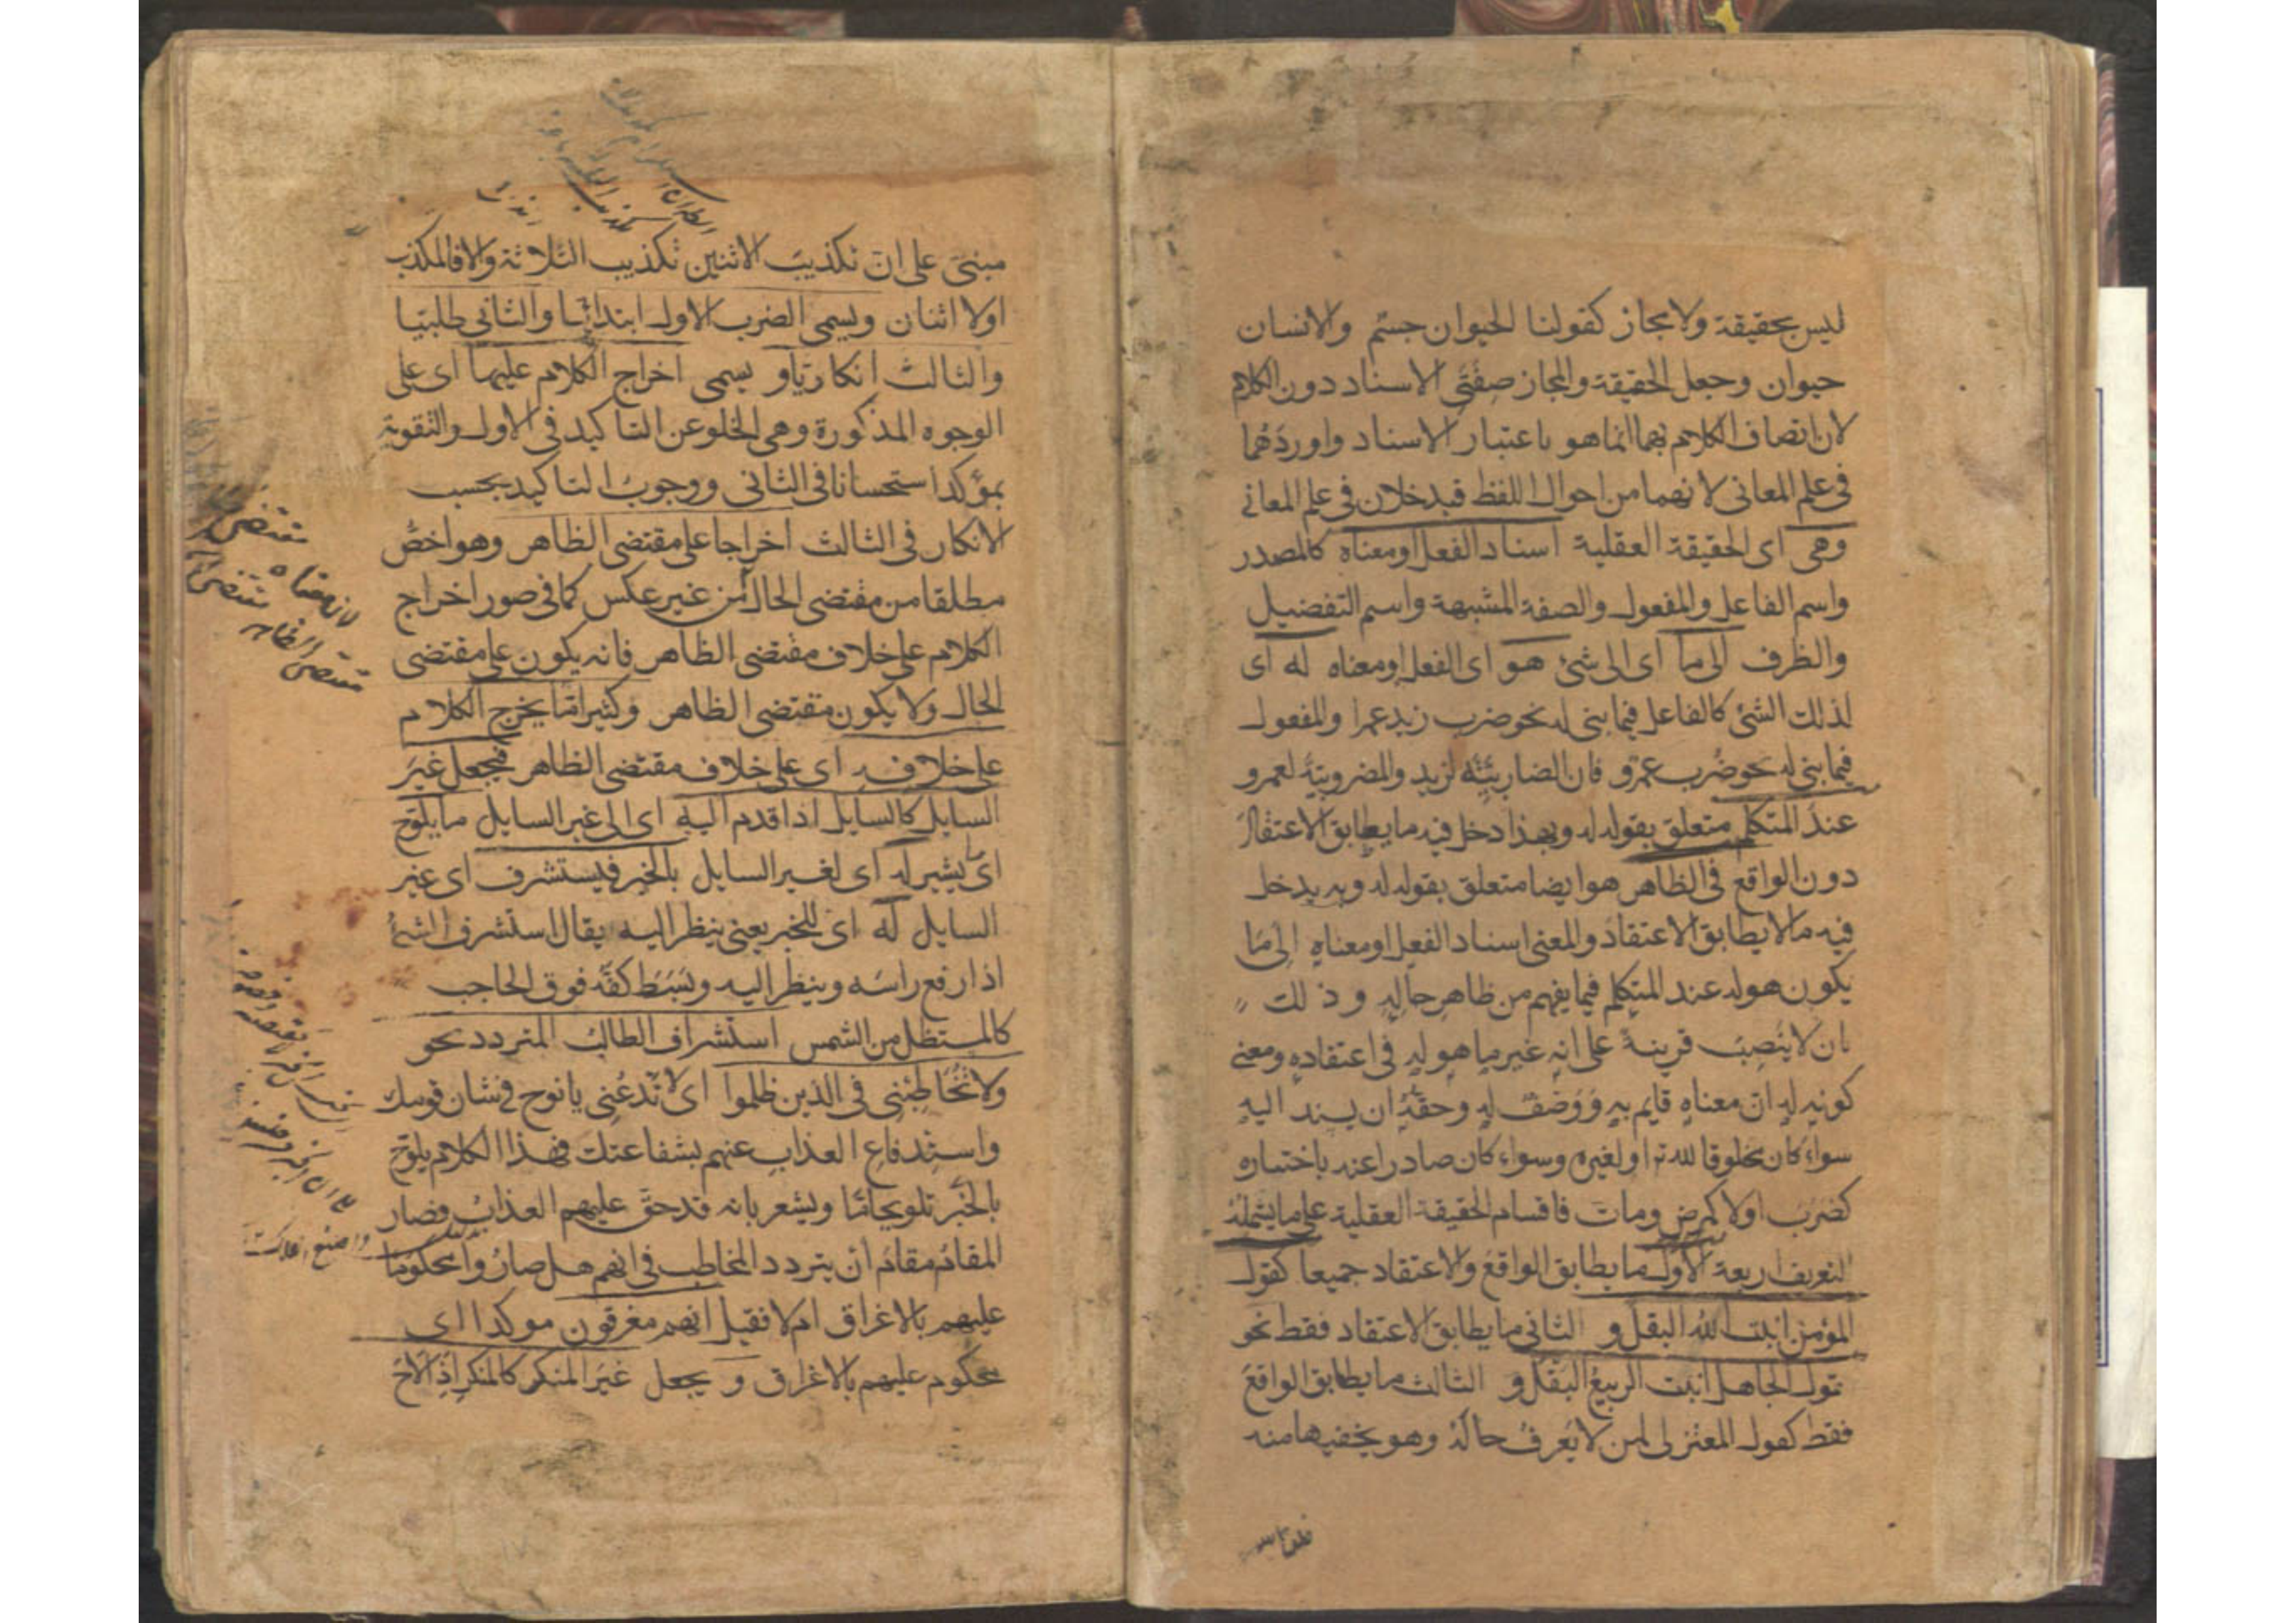 ليس بحقيقة ولا مجاز كقولنا الحيوان جسم والانسان
حيوان وجعل الحقيقة والمجاز صفتي الاسناد دون الكلام
لان اتصاف الكلام بهما انما هو باعتبار الاسناد واوردهما
في علم المعاني لانهما من احوال اللفظ فيدخلان في علم المعاني
وهي اي الحقيقة العقلية اسناد الفعل او معناه كالمصدر
واسم الفاعل والمفعول والصفة المشبهة واسم التفضيل
والظرف الى ما اي الى شئ هو اي الفعل او معناه له اي
لذلك الشئ كالفاعل فيما بني له نحو ضرب زيد عمرا والمفعول
فيما بني له نحو ضُرب عمرو فان الضاربيّة لزيد والمضروبيّة لعمرو
عند المتكلم متعلق بقوله له وبهذا دخل فيه ما يطابق الاعتقاد
دون الواقع في الظاهر هو ايضا متعلق بقوله له وبه يدخل
فيه ما لا يطابق الاعتقاد والمعنى اسناد الفعل او معناه الى ما
يكون هو له عند المتكلم فيما يفهم من ظاهر حاله وذلك
بان لا ينصب قرينة على انه غير ما هو له في اعتقاده ومعنى
كونه له ان معناه قايم به ووصف له وحقه ان يسند اليه
سواء كان مخلوقا لله تع او لغيره وسواء كان صادرا عنه باختياره
كضرب اولا كمرض ومات فاقسام الحقيقة العقلية على ما يشمله
التعريف اربعة الاول ما يطابق الواقع والاعتقاد جميعا كقول
المؤمن انبت الله البقل و الثاني ما يطابق الاعتقاد فقط نحو
قول الجاهل انبت الربيع البقل و الثالث ما يطابق الواقع
فقط كقول المعتزلي لمن لا يعرف حاله وهو يخفيها منه
مبني على ان تكذيب الاثنين تكذيب الثلاثة والا فالمكذب
اولا اثنان ويسمى الضرب الاول ابتدائيا والثاني طلبيا
والثالث انكاريّا و يسمى اخراج الكلام عليها اي على
الوجوه المذكورة وهي الخلو عن التاكيد في الاول والتقوية
بمؤكد استحسانا في الثاني ووجوب التاكيد بحسب
الانكار في الثالث اخراجا على مقتضى الظاهر وهو اخصّ
مطلقا من مقتضى الحال من غير عكس كما في صور اخراج
الكلام على خلاف مقتضى الظاهر فانه يكون على مقتضى
الحال ولا يكون مقتضى الظاهر وكثيرا ما يخرج الكلام
على خلافه اي على خلاف مقتضى الظاهر فيجعل غير
السايل كالسايل اذا قدم اليه اي الى غير السايل ما يلوّح
اي يشير له اي لغير السايل بالخبر فيستشرف اي غير
السايل له اي للخبر يعني ينظر اليه يقال استشرف الشئ
اذا رفع راسه وينظر اليه وبسط كفّه فوق الحاجب
كالمستظل من الشمس استشراف الطالب المتردد نحو
ولا تخاطبني في الذين ظلموا اي لا تدعني يا نوح في شان قومك
واستدفاع العذاب عنهم بشفاعتك فهذا الكلام يلوّح
بالخبر تلويحا ما ويشعر بانه قد حقّ عليهم العذاب فصار
المقام مقام ان يتردد المخاطب في انهم هل صاروا محكوما
عليهم بالاغراق ام لا فقيل انهم مغرقون موكدا اي
محكوم عليهم بالاغراق و يجعل غير المنكر كالمنكر اذا لاح